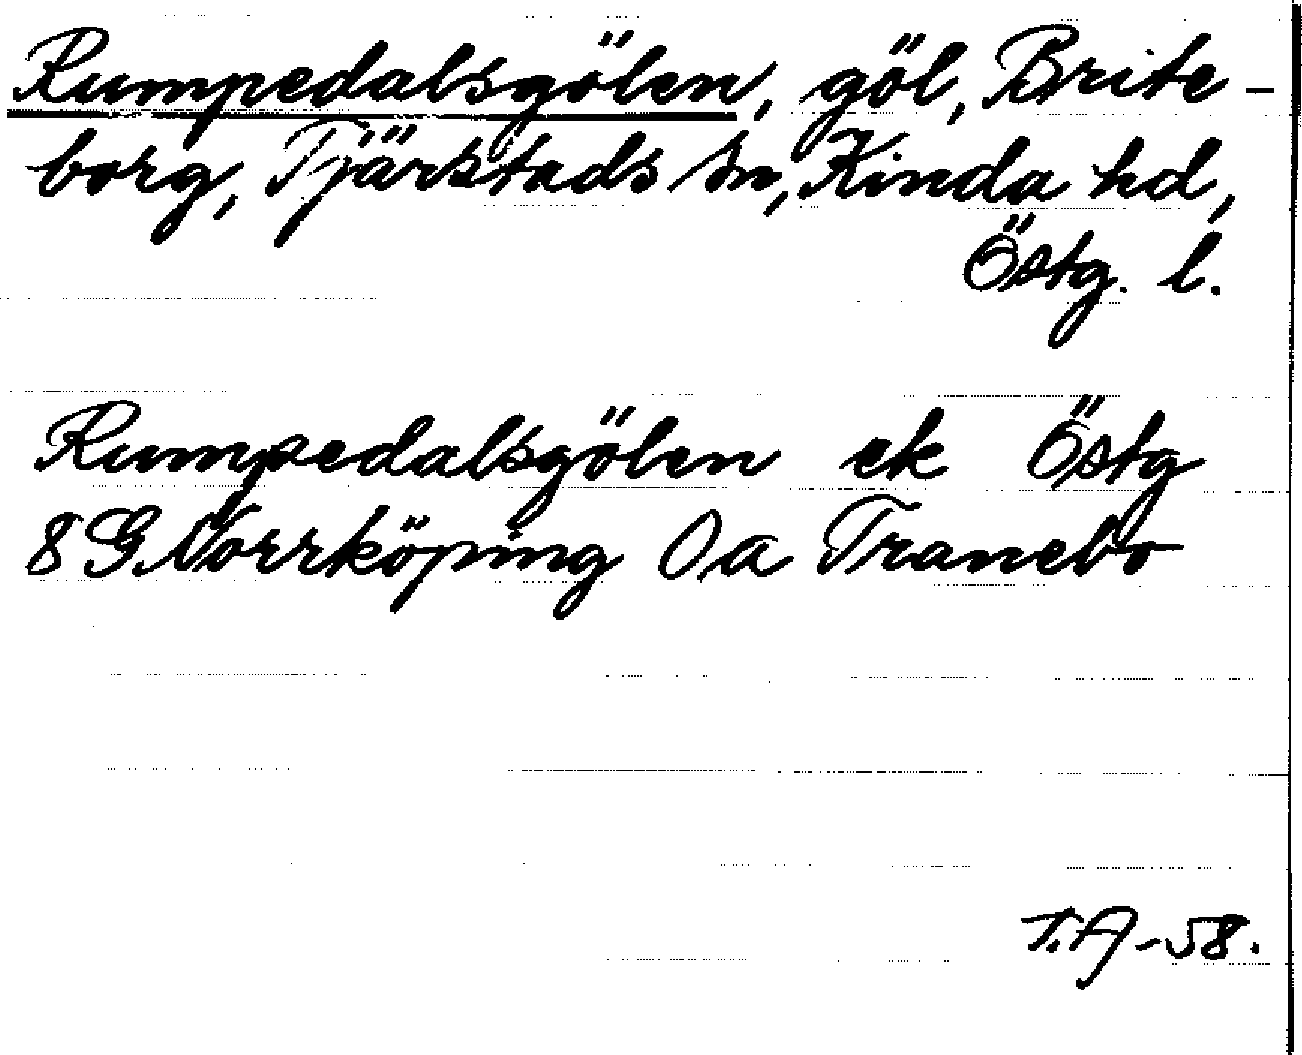 Rumpedalsgölen, göl, Brite-
borg, Tjärstads sn, Kinda hd,
Östg. l.
Rumpedalsgölen ek Östg
8 G Norrköping Oa Tranebo
T.A-58.